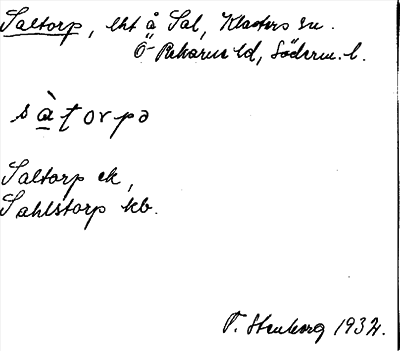 Saltorp, lht å Sal, Klosters sn.
Ö Rekarne hd, Söderm. l.
sàt̨orpə
Saltorp ek,
Sahlstorp kb.
P. Stenborg 1932.